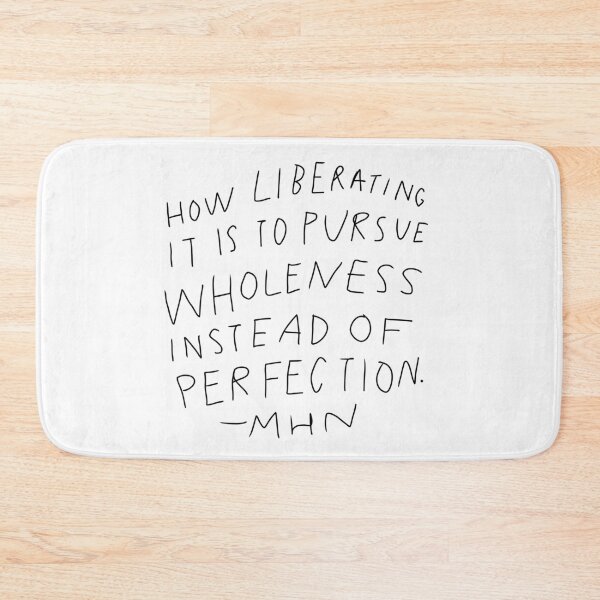 HOW LIBERATING
IT IS TO PURSUE
WHOLENESS
INSTEAD OF
PERFECTION.
-MHN